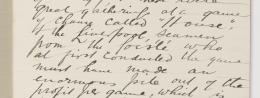 great gatherings at a game
of chance called "House"
of the Liverpool seamen
from the focsle, who
at first conducted the game
must have made an
enormous pile out of the
profit per game, which is